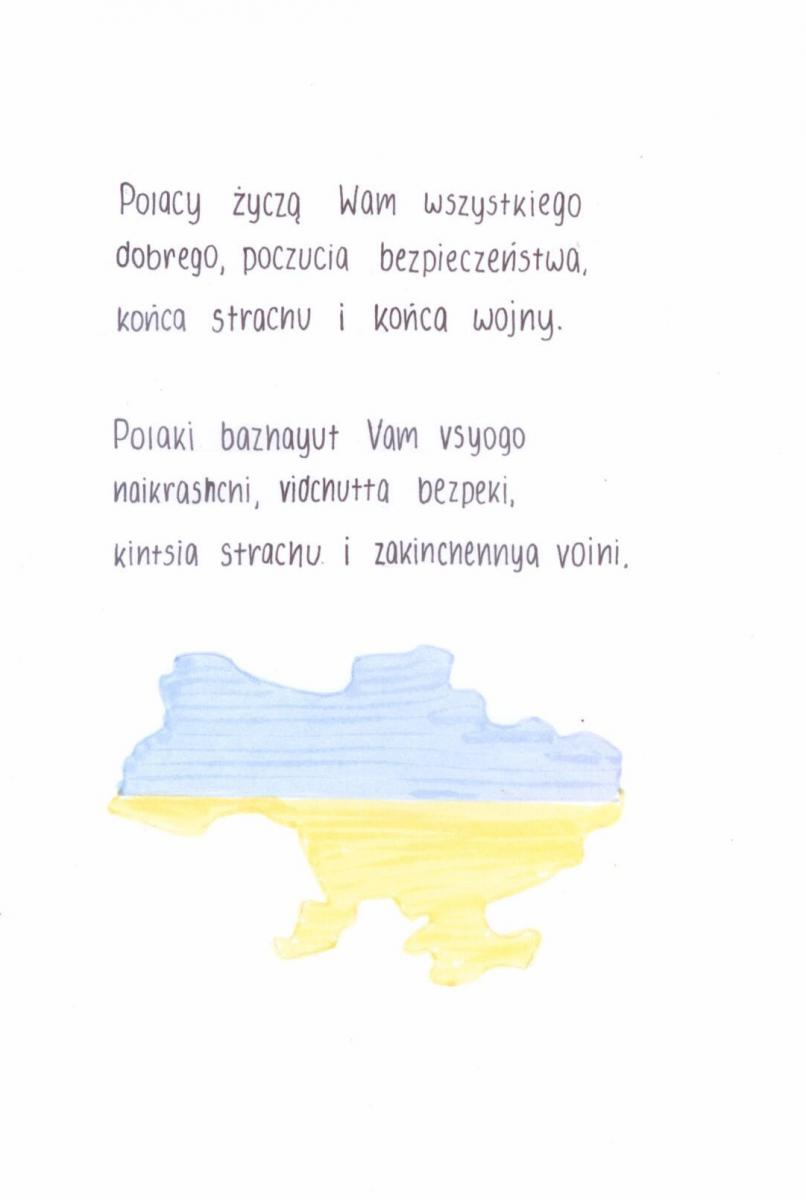 Polacy życzą Wam wszystkiego
dobrego, poczucia bezpieczeństwa,
końca strachu i końca wojny.
Polaki bazhayut Vam vsyogo
naikrashchi, vidchutta bezpeki,
kintsia strachu i zakinchennya voini.